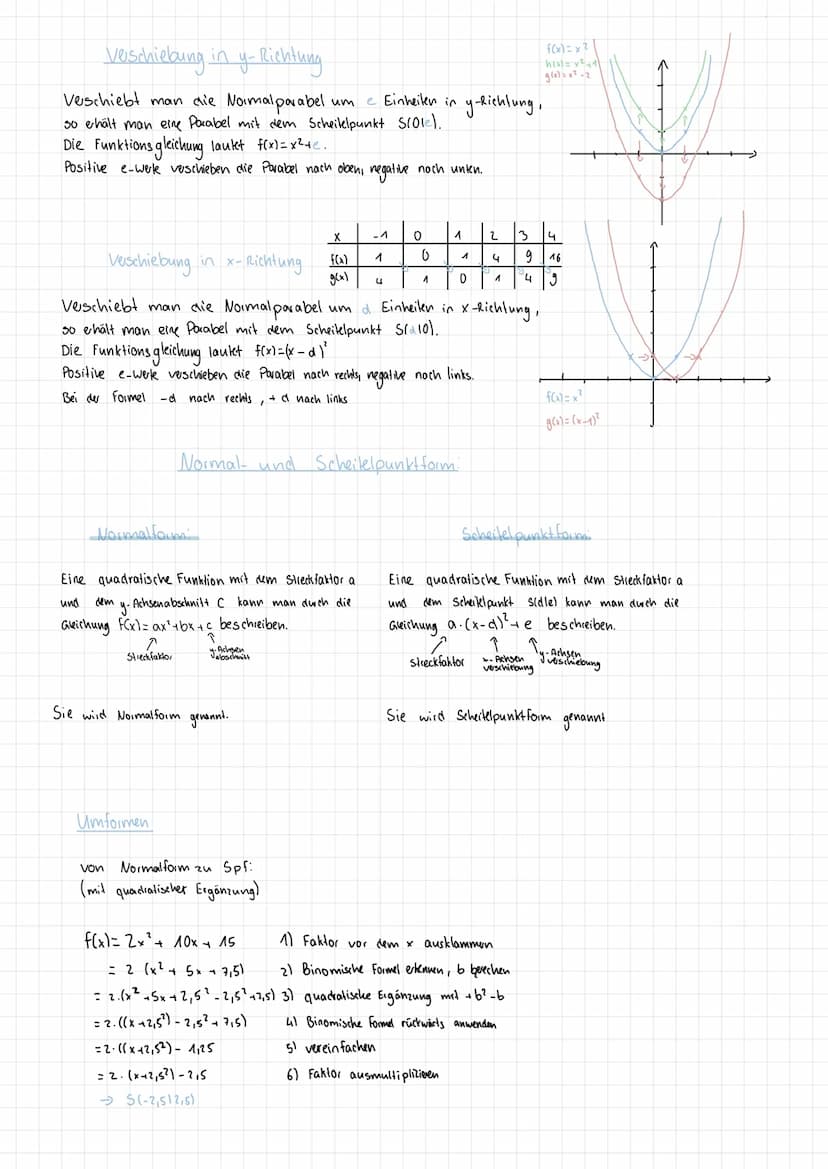 Verschiebung in y-Richtung
f(x) = x²
h(x) = x²+1
g(x) = x²-2
Verschiebt man die Normalparabel um e Einheiten in y-Richtung,
so erhält man eine Parabel mit dem Scheitelpunkt S(0|e).
Die Funktionsgleichung lautet f(x)=x²+e.
Positive e-Werte verschieben die Parabel nach oben, negative nach unten.
x -1 0 1 2 3 4
f(x) 1 0 1 4 9 16
g(x) 4 1 0 1 4 9
Verschiebung in x-Richtung
Verschiebt man die Normalparabel um d Einheiten in x-Richtung,
so erhält man eine Parabel mit dem Scheitelpunkt S(d|0).
Die Funktionsgleichung lautet f(x)=(x-d)²
Positive e-Werte verschieben die Parabel nach rechts, negative nach links.
Bei der Formel -d nach rechts, +d nach links
f(x)=x²
g(x)=(x-1)²
Normal- und Scheitelpunktform:
Normalform:
Eine quadratische Funktion mit dem Streckfaktor a
und dem y-Achsenabschnitt C kann man durch die
Gleichung f(x)=ax²+bx+c beschreiben.
Streckfaktor
y-Achsen
abschnitt
Sie wird Normalform genannt.
Scheitelpunktform:
Eine quadratische Funktion mit dem Streckfaktor a
und dem Scheitelpunkt S(d|e) kann man durch die
Gleichung a·(x-d)²+e beschreiben.
Streckfaktor
x-Achsen
verschiebung
y-Achsen
verschiebung
Sie wird Scheitelpunktform genannt
Umformen
von Normalform zu Spf:
(mit quadratischer Ergänzung)
f(x)= 2x² + 10x + 15 1) Faktor vor dem x ausklammen
= 2 (x² + 5x + 7,5) 2) Binomische Formel erkennen, b berechen
= 2·(x² +5x+2,5² -2,5²+7,5) 3) quadratische Ergänzung mit +b²-b
= 2·((x+2,5²) - 2,5² + 7,5) 4) Binomische Formel rückwärts anwenden
=2·((x+2,5²) - 1,25 5) vereinfachen
= 2·(x+2,5²) - 2,5 6) Faktor ausmultiplizieren
→ S(-2,5|2,5)